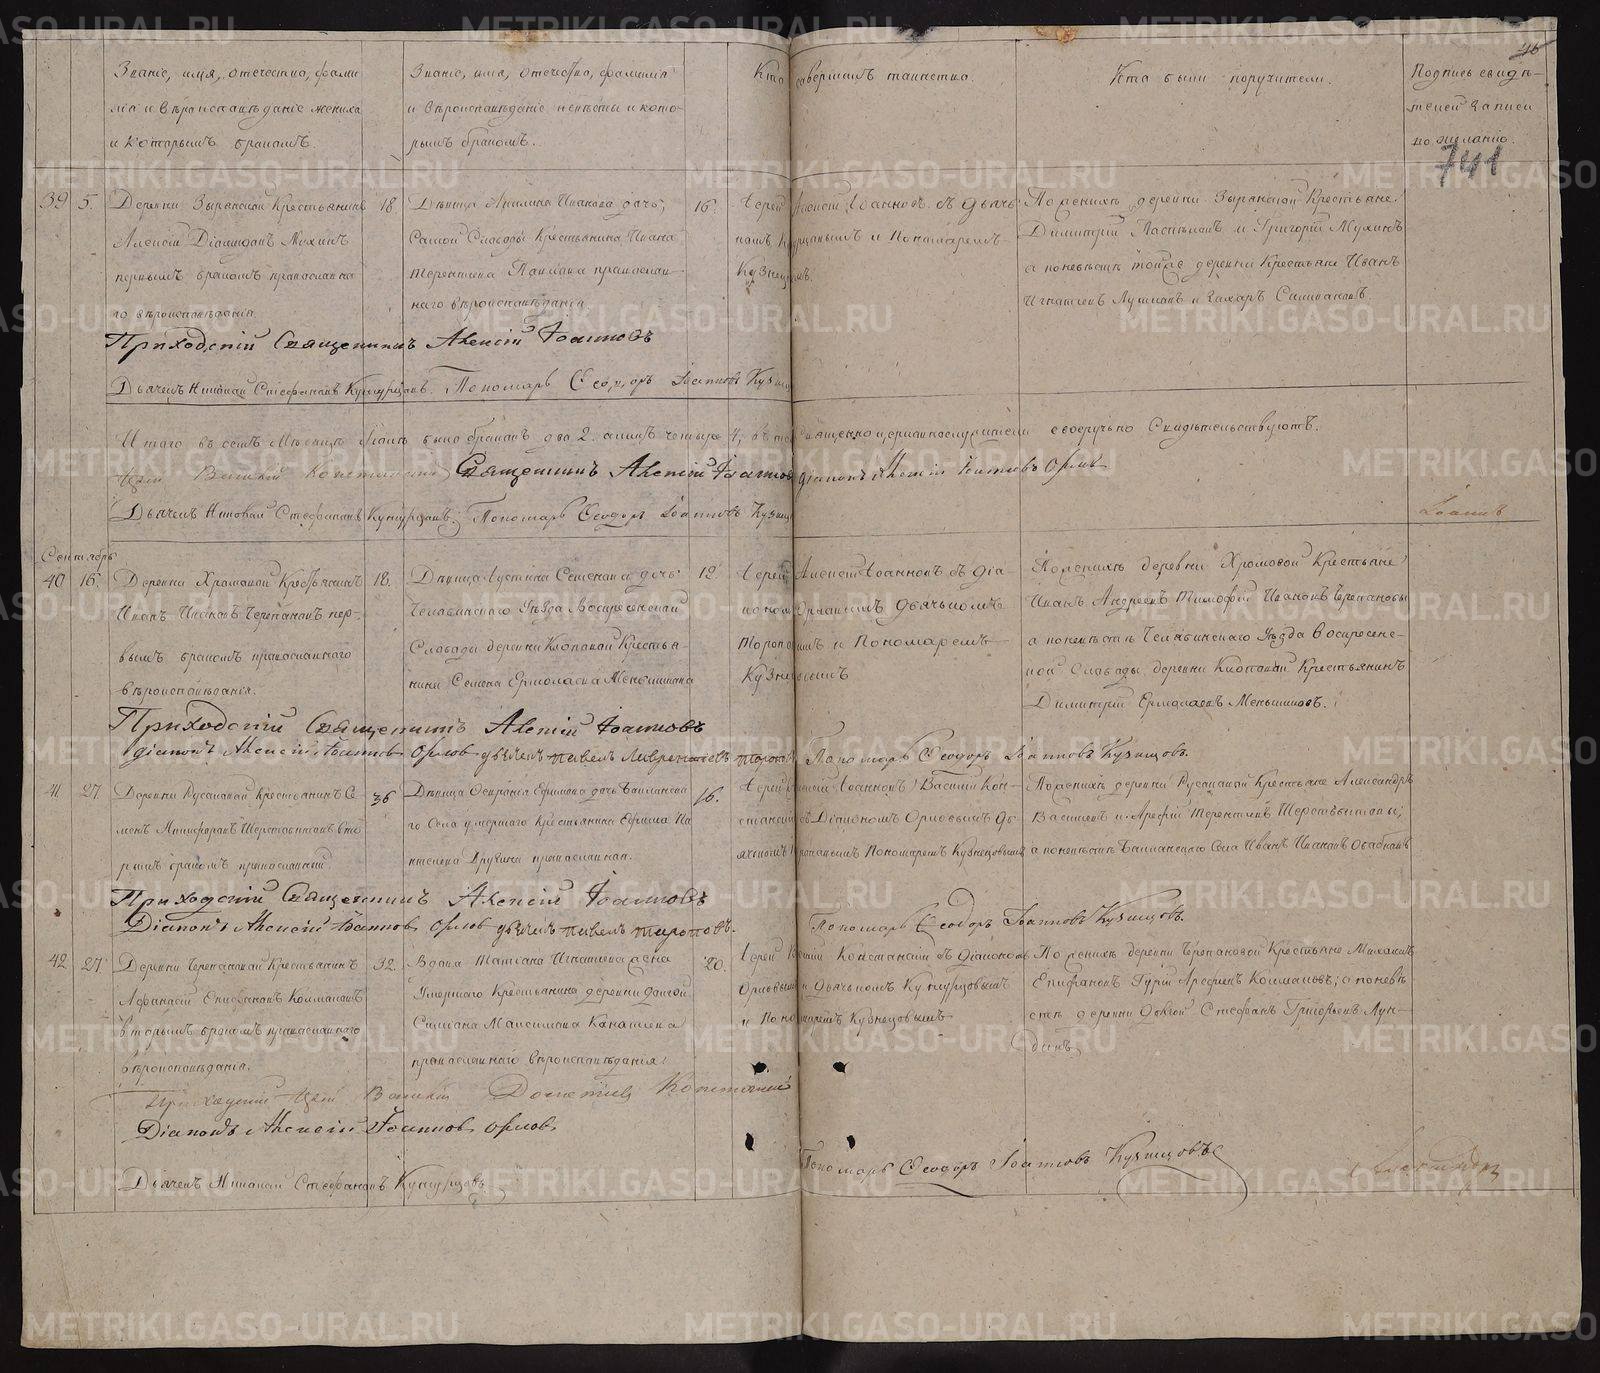 46
Званіе, имя, отечество, фами-
лія и вѣроисповѣданіе жениха
и которымъ бракомъ.
Званіе, имя, отечество, фамилія
и вѣроисповѣданіе невѣсты и кото-
рымъ бракомъ.
Кто совершалъ таинство.
Кто были поручители.
Подпись свидѣ-
телей записи
по желанію.
741
39 5.
Деревни Зырянской Крестьянинъ
Алексій Мухинъ
первымъ бракомъ православна
го вѣроисповѣданія.
18
Дѣвица Акилина Иванова дочь,
Самой Слободы Крестьянина Ивана
Терентьева православ-
наго вѣроисповѣданія
16.
Іерей Алексій Іоанновъ съ дьяч-
комъ и Пономаремъ
Кузнецовымъ.
По женихѣ деревни Зырянской Крестьяне
Димитрій и Григорій Мухинъ
а по невѣстѣ тойже деревни Крестьяне Иванъ
Игнатьевъ и Захаръ
Приходскій Священникъ Алексій Іоанновъ
Дьячекъ Николай Стефановъ Кунгурцовъ. Пономарь Ѳеодоръ Іоанновъ Кузнецовъ
Итого въ семъ Мѣсяцѣ было браковъ два 2. лицъ четыре 4, въ томъ священноцерковнослужители своеручно Свидѣтельствуютъ.
Іерей Василій Констанскій Священникъ Алексій Іоанновъ діаконъ Алексій Іоанновъ Орловъ
Дьячекъ Николай Стефановъ Кунгурцовъ. Пономарь Ѳеодоръ Іоанновъ Кузнецовъ
Іоаннъ
Сентябрь
40 16.
Деревни Хромовой Крестьянинъ
Иванъ Ивановъ Черепановъ пер-
вымъ бракомъ православнаго
вѣроисповѣданія.
18.
Дѣвица Іустина Семенова дочь
Челябинскаго Уѣзда Воскресенской
Слободы деревни Клоповой Крестья-
нина Семена Ермолаева Меньшикова
19
Іерей Алексій Іоанновъ съ діа-
кономъ Орловымъ дьячькомъ
Тороповымъ и Пономаремъ
Кузнецовымъ
По женихѣ деревни Хромовой Крестьяне
Иванъ Андреевъ Тимофей Ивановъ Черепановы
а по невѣстѣ Челябинскаго Уѣзда Воскресенс-
кой Слободы деревни Клоповой Крестьянинъ
Димитрій Ермолаевъ Меньшиковъ.
Приходскій Священникъ Алексій Іоанновъ
діаконъ Алексій Іоанновъ Орловъ дьячекъ павелъ Лаврентьевъ тороповъ Пономарь Ѳеодоръ Іоанновъ Кузнецовъ.
41 27
Деревни Русаковой Крестьянинъ Се-
менъ Никифоровъ Шерстобитовъ вто-
рымъ бракомъ православный
36
Дѣвица Евфимова дочь
го Села умершаго Крестьянина Ефима Па
нтелеева Дружина православная.
16.
Іерей Алексій Іоанновъ Василій Кон-
станскій съ Діакономъ Орловымъ дь-
ячькомъ Тороповымъ Пономаремъ Кузнецовымъ
По женихѣ деревни Русаковой Крестьяне Александръ
Васильевъ и Арефій Терентьевъ Шерстобитовы;
а по невѣстѣ Села Иванъ Ивановъ
Приходскій Священникъ Алексій Іоанновъ
Діаконъ Алексій Іоанновъ Орловъ дьячекъ павелъ тороповъ. Пономарь Ѳеодоръ Іоанновъ Кузнецовъ.
42 27
Деревни Черепановой Крестьянинъ
Афанасій Епифановъ Колмаковъ
вторымъ бракомъ православнаго
вѣроисповѣданія.
32.
Вдова Татіана Игнатьева жена
Умершаго Крестьянина деревни
Максимова
православнаго вѣроисповѣданія
20.
Іерей Василій Констанскій съ Діакономъ
Орловымъ и Дьячькомъ Кунгурцовымъ
и Пономаремъ Кузнецовымъ
По женихѣ деревни Черепановой Крестьяне Михаилъ
Епифановъ Гурій Арефьевъ Колмаковъ; а по невѣ
стѣ деревни Стефанъ Григорьевъ Лун-
динъ
Приходскій Іерей Василій Констанскій
Діаконъ Алексій Іоанновъ Орловъ
Дьячекъ Николай Стефановъ Кунгурцовъ
Пономарь Ѳеодоръ Іоанновъ Кузнецовъ
METRIKI.GASO-URAL.RU